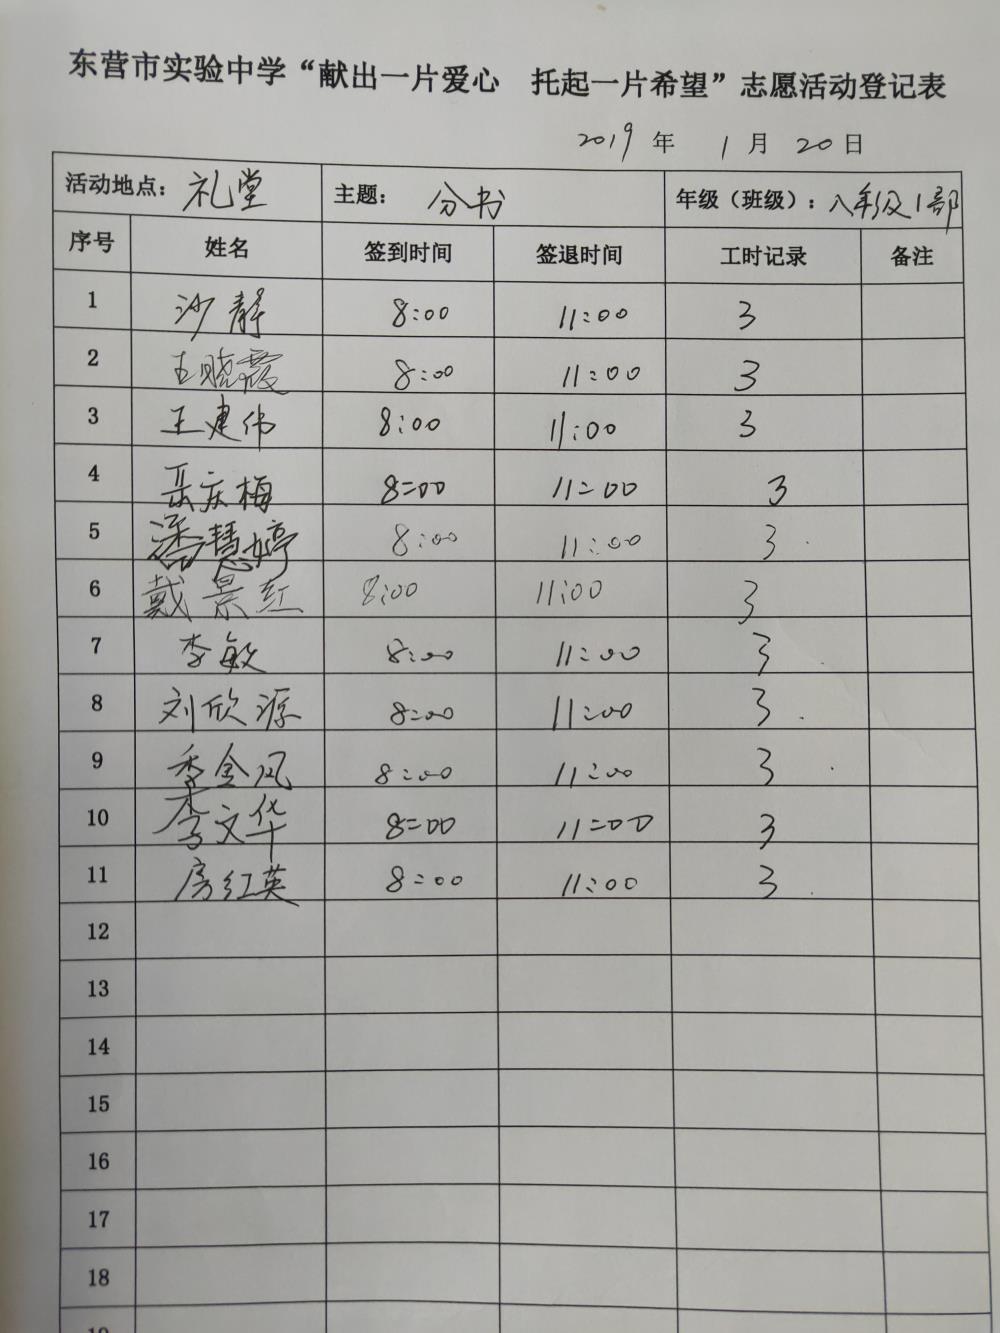 东营市实验中学“献出一片爱心 托起一片希望”志愿活动登记表
2019 年 1 月 20 日
活动地点：礼堂 主题： 分书 年级（班级）：八年级1部
序号 姓名 签到时间 签退时间 工时记录 备注
1 沙静 8:00 11:00 3
2 王晓霞 8:00 11:00 3
3 王建伟 8:00 11:00 3
4 聂庆梅 8:00 11:00 3
5 潘慧婷 8:00 11:00 3
6 戴景红 8:00 11:00 3
7 李敏 8:00 11:00 3
8 刘欣源 8:00 11:00 3
9 季金凤 8:00 11:00 3
10 李文华 8:00 11:00 3
11 房红英 8:00 11:00 3
12
13
14
15
16
17
18
19